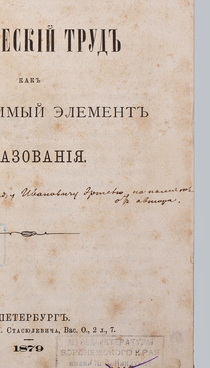 ЕСКІЙ ТРУДЪ
КАКЪ
ИМЫЙ ЭЛЕМЕНТЪ
АЗОВАНІЯ.
Ивановичу на память
отъ автора.
ПЕТЕРБУРГЪ.
СТАСЮЛЕВИЧА, Вас. О., 2 л., 7.
1879
ЛИТЕРАТУРЫ
ВОРОНЕЖСКОГО КРАЯ